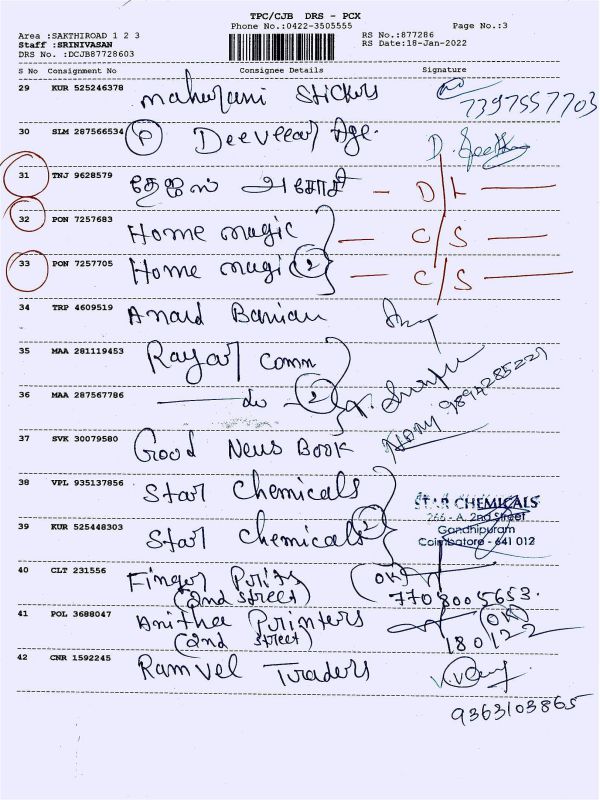 TPC/CJB DRS - PCX
Phone No.:0422-3505555
Page No.:3
Area :SAKTHIROAD 1 2 3
Staff :SRINIVASAN
DRS No. :DCJB87728603
RS No.:877286
RS Date:18-Jan-2022
S No Consignment No Consignee Details Signature
29 KUR 525246378 Maharani Stickers
7397557703
30 SLM 287566534 P Deeveear Age.
31 TNJ 9628579 தேஜஸ் - D/L
32 PON 7257683 Home magic - C/S
33 PON 7257705 Home magic 2 - C/S
34 TRP 4609519 Anand Banian
35 MAA 281119453 Rayar Comm
36 MAA 287567786 do 2
37 SVK 30079580 Good News Book
38 VPL 935137856 Star Chemicals
39 KUR 525448303 Star Chemicals 2
STAR CHEMICALS
266 - A, 2nd Street
Gandhipuram
Coimbatore - 641 012
40 CLT 231556 Finger Prints (OK)
(2nd street) 7708005653.
41 POL 3688047 Anitha Printers (OK)
(2nd street) 180122
42 CNR 1592245 Ramvel Traders
9363103865